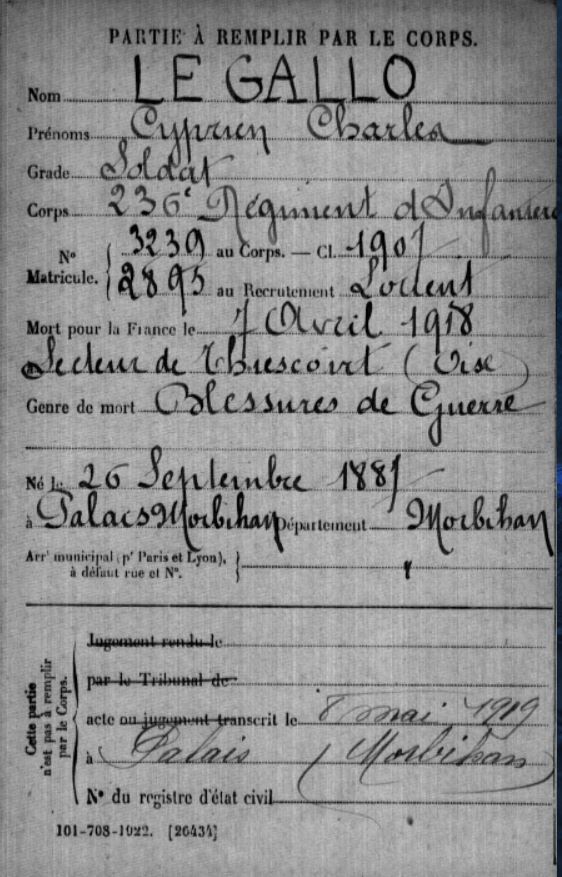 PARTIE À REMPLIR PAR LE CORPS.
Nom LE GALLO
Prénoms Cyprien Charles
Grade Soldat
Corps 236e Régiment d'Infanterie
N° Matricule. { 3239 au Corps. — Cl. 1907
2895 au Recrutement Lorient
Mort pour la France le 7 Avril 1918
à Secteur de Thiescourt (Oise)
Genre de mort Blessures de Guerre
Né le 26 Septembre 1887
à Palais Morbihan Département Morbihan
Arrt municipal (pr Paris et Lyon), }
à défaut rue et N°.
Cette partie n'est pas à remplir par le Corps.
Jugement rendu le
par le Tribunal de
acte ou jugement transcrit le 8 mai 1919
à Palais (Morbihan)
N° du registre d'état civil
101-708-1922. [26434]